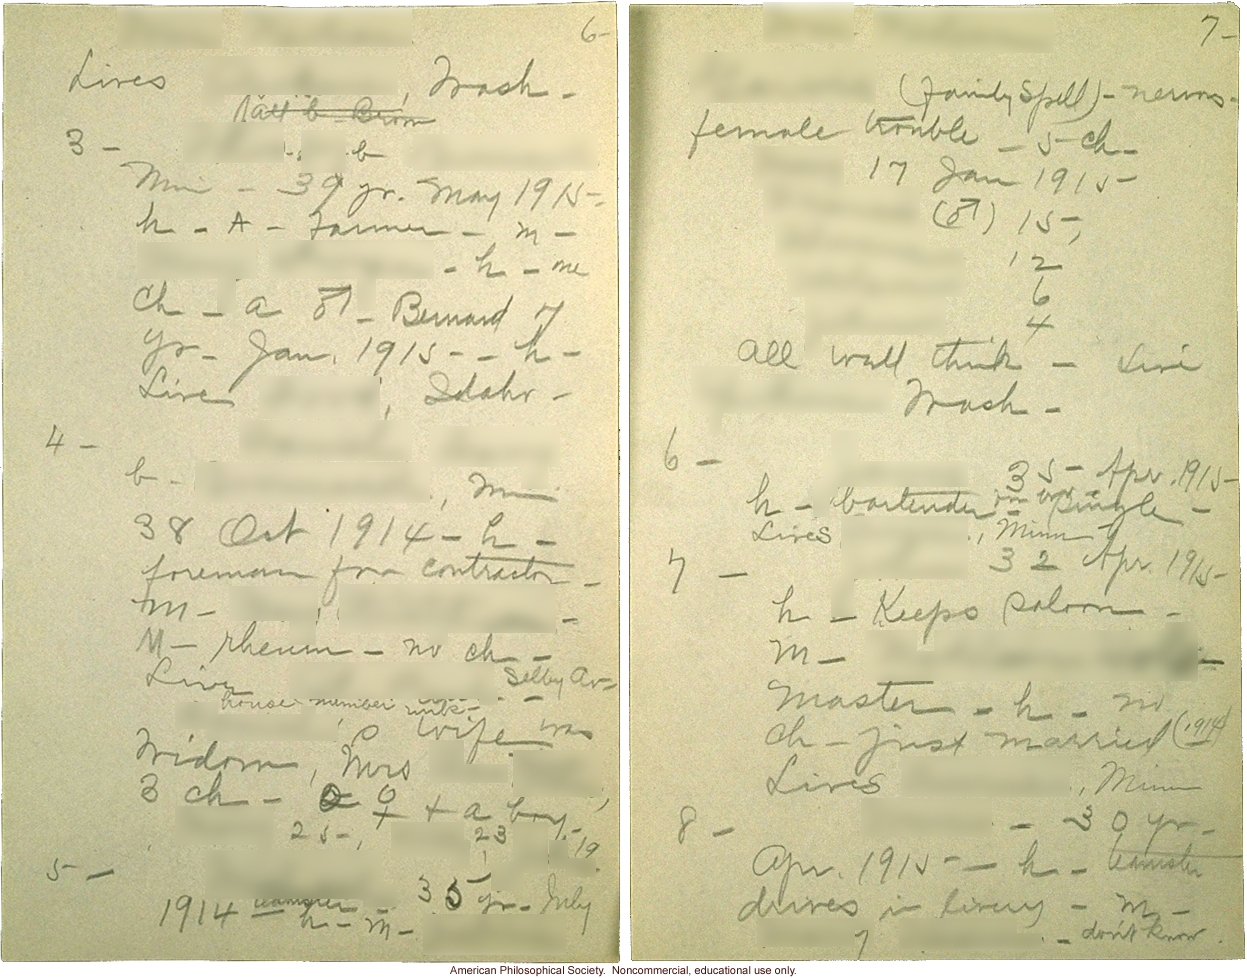 6-
Lives , Wash -
3 -
b
Min - 39 yr. May 1915-
h - A - Farmer - m -
- h - one
ch - a ♂ - Bernard 7
yr - Jan. 1915 - - h -
Live , Idaho -
4 -
b - , Min
38 Oct 1914 - h -
foreman for contractor -
M - -
M - rheum - no ch -
Live Selby Av-
house member
wife was
Widow, Mrs
3 ch - 2 ♀ + a boy -,
25-, 23, 19
5 -
35 yr - July
1914 teamster h - m -
7-
(family spell) - nervous-
female trouble - 5 ch -
17 Jan 1915-
(♂) 15-,
12
6
4
All well think - Live
Wash -
6 -
35 - Apr. 1915-
h - bartender - single -
Lives , Minn -
7 -
32 Apr. 1915-
h - Keeps saloon -
M -
Master - h - no
ch - just married (1914)
Lives , Minn
8 -
- 30 yr -
Apr. 1915 - - h - teamster
drives in livery - m -
? - don't know.
American Philosophical Society. Noncommercial, educational use only.